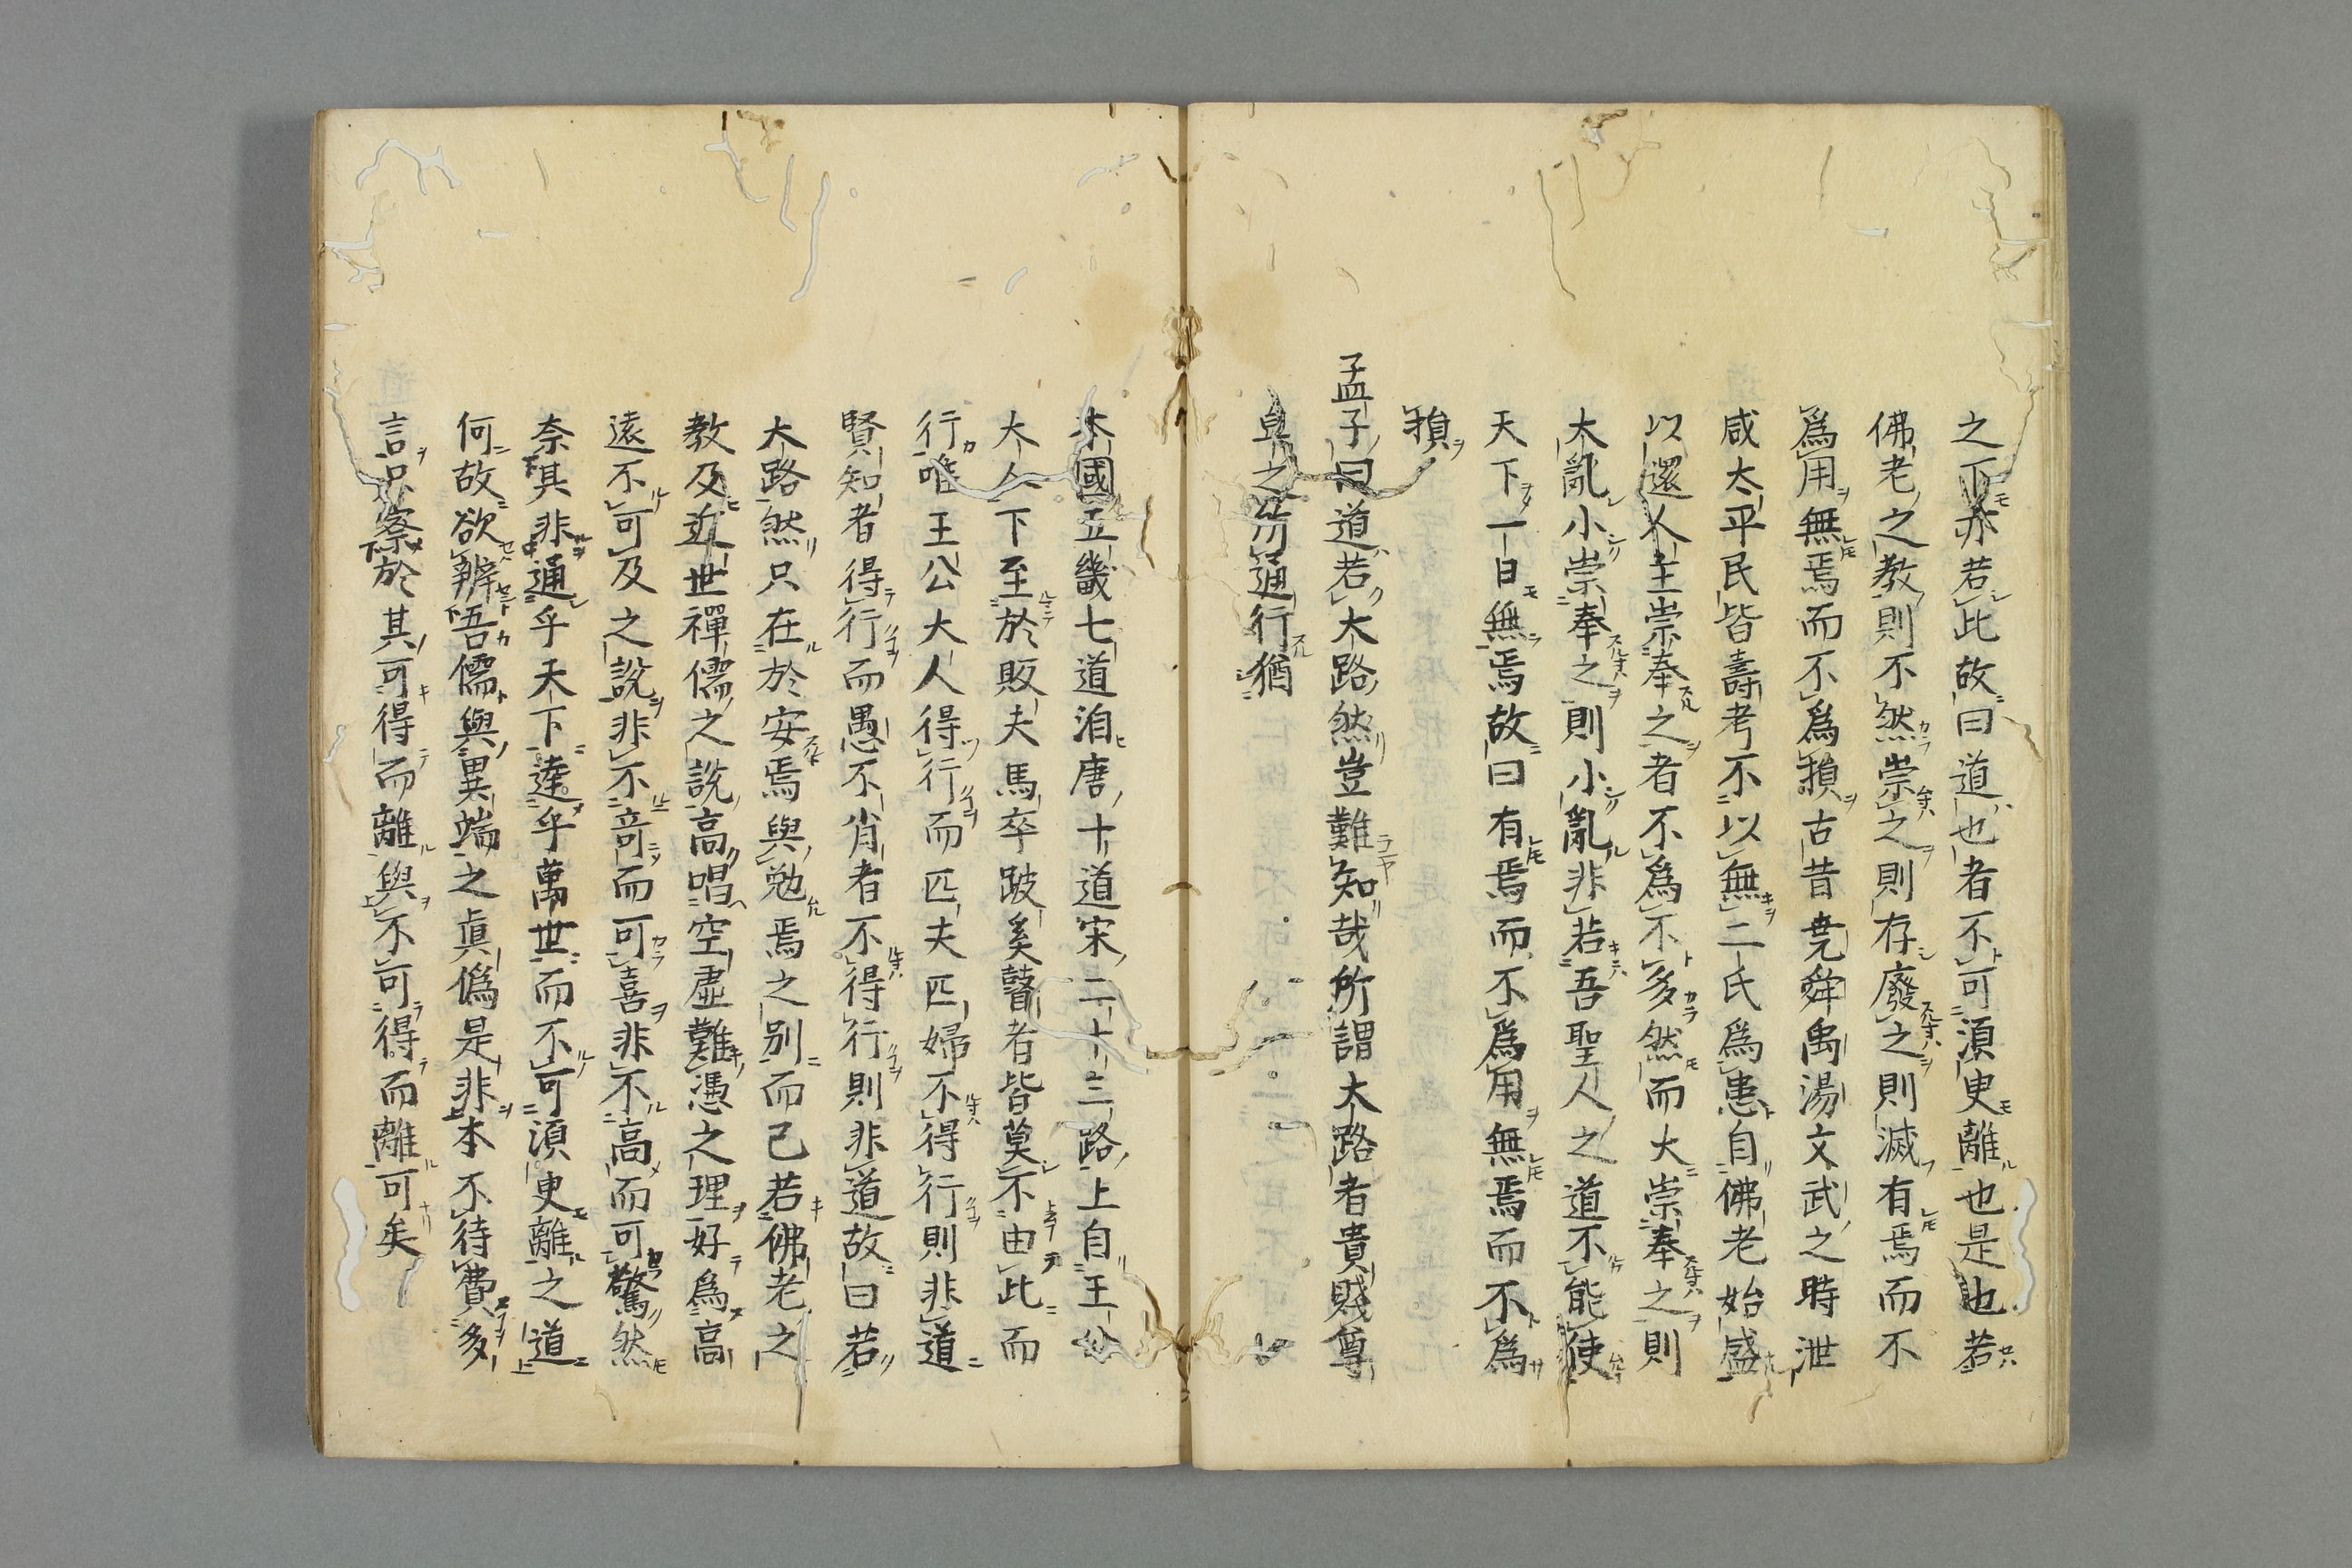 之下亦若此故曰道也者不可須臾離也是也若
佛老之教則不然崇之則存廢之則滅有焉而不
爲用無焉而不爲損古昔堯舜禹湯文武之時泄
咸太平民皆壽考不以無二氏爲患自佛老始盛
以還人主崇奉之者不爲不多然而大崇奉之則
大亂小崇奉之則小亂非若吾聖人之道不能使
天下一日無焉故曰有焉而不爲用無焉而不爲
損
孟子曰道若大路然豈難知哉所謂大路者貴賤尊
卑之所通行猶
本國五畿七道洎唐十道宋二十三路上自王公
大人下至於販夫馬卒跛奚瞽者皆莫不由此而
行唯王公大人得行而匹夫匹婦不得行則非道
賢知者得行而愚不肖者不得行則非道故曰若
大路然只在於安焉與勉焉之別而己若佛老之
教及近世禪儒之說高唱空虛難憑之理好爲高
遠不可及之說非不奇而可喜非不高而可驚然
奈其非通乎天下達乎萬世而不可須臾離之道
何故欲辨吾儒與異端之眞僞是非本不待費多
言只察於其可得而離與不可得而離可矣